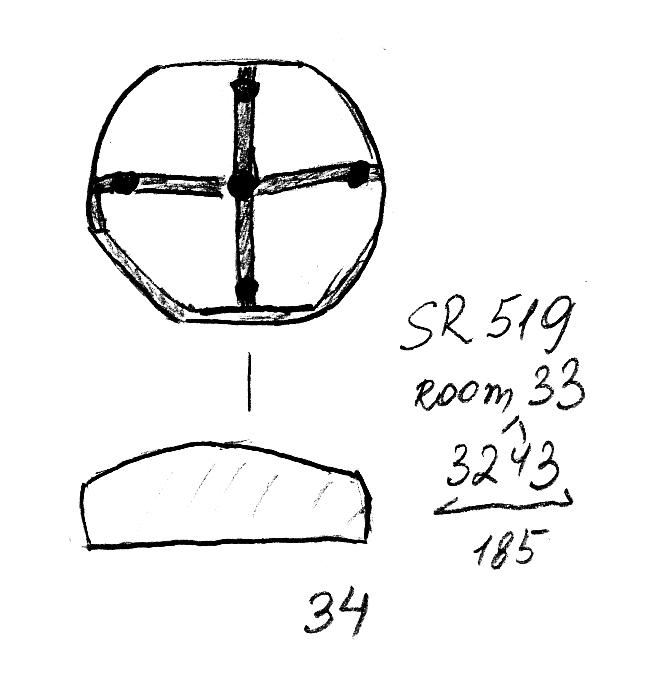 SR 519
ROOM 33
3243
185
34